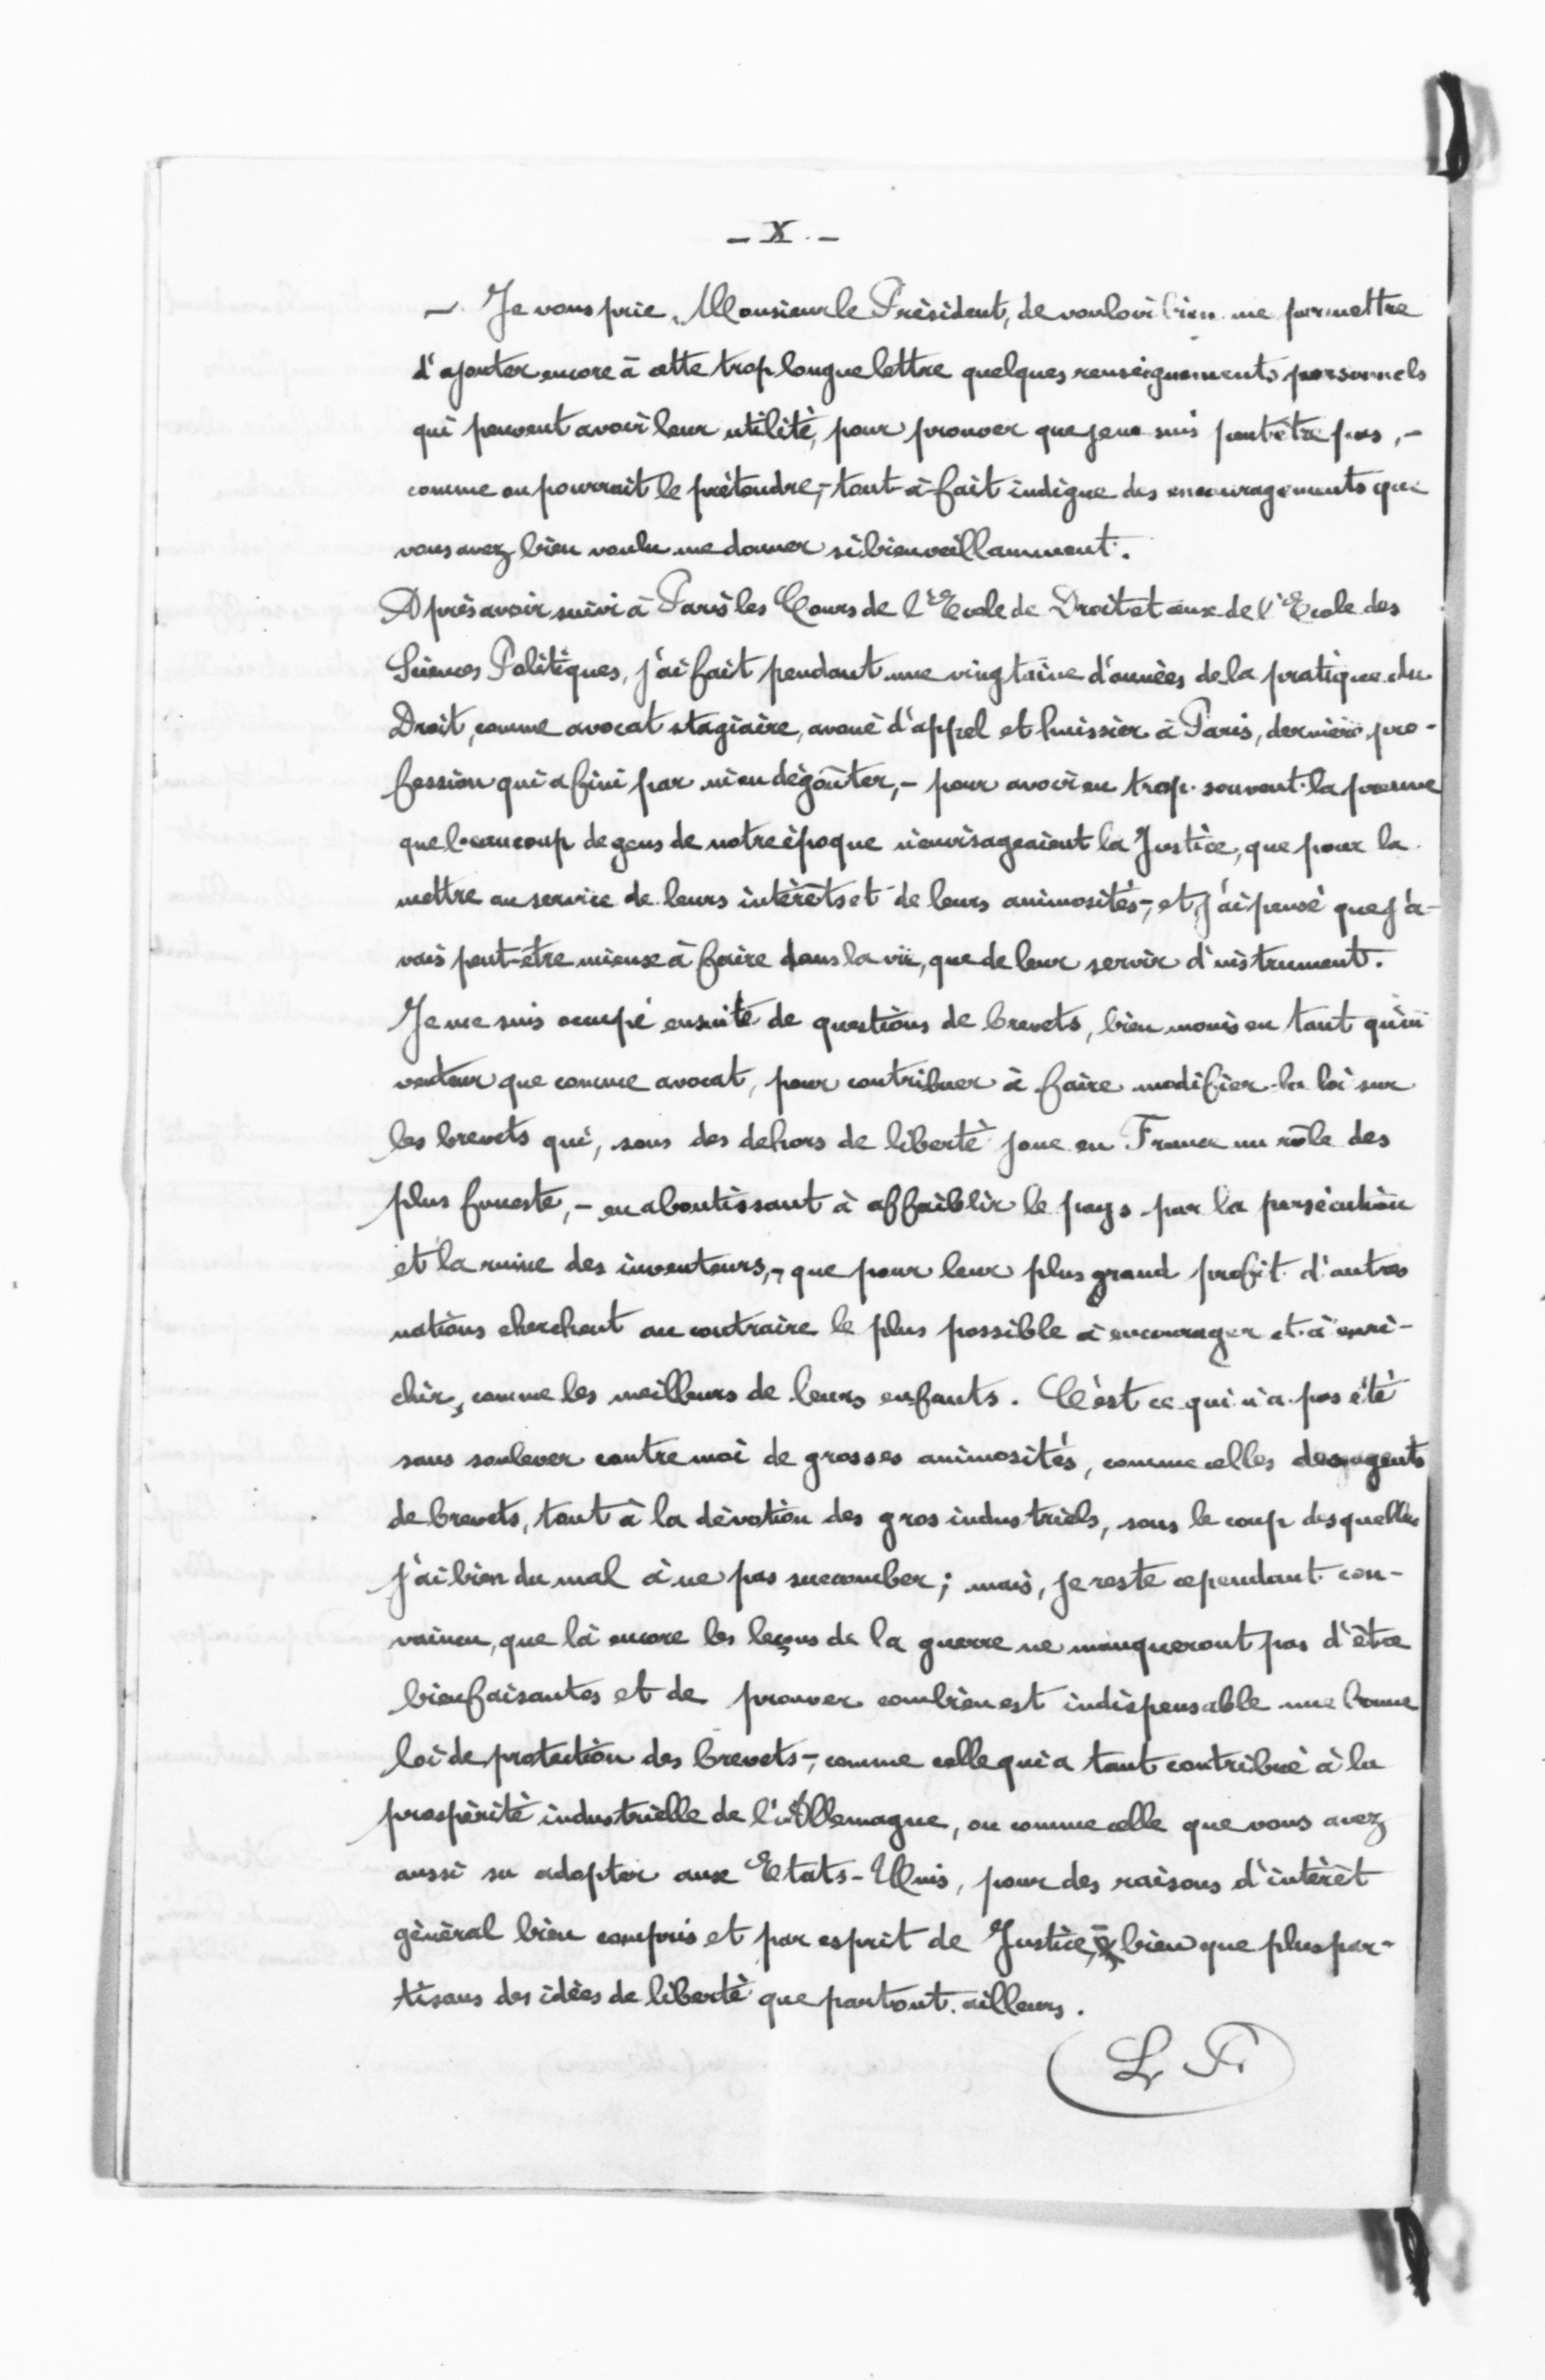 - X. -
- Je vous prie, Monsieur le Président, de vouloir bien me permettre
d'ajouter encore à cette trop longue lettre quelques renseignements personnels
qui peuvent avoir leur utilité, pour prouver que je ne suis peut être pas, -
comme on pourrait le prétendre, - tout-à-fait indigne des encouragements que
vous avez bien voulu me donner si bienveillamment.
Après avoir suivi à Paris les Cours de l'Ecole de Droit et ceux de l'Ecole des
Sciences Politiques, j'ai fait pendant une vingtaine d'années de la pratique du
Droit, comme avocat stagiaire, avoué d'appel et huissier à Paris, dernière pro-
fession qui a fini par m'en dégoûter, - pour avoir eu trop souvent la preuve
que beaucoup de gens de notre époque n'envisageaient la Justice, que pour la
mettre au service de leurs intérêts et de leurs animosités -, et j'ai pensé que j'a-
vais peut-être mieux à faire dans la vie, que de leur servir d'instrument.
Je me suis occupé ensuite de questions de brevets, bien moins en tant qu'in
venteur que comme avocat, pour contribuer à faire modifier la loi sur
les brevets qui, sous des dehors de liberté joue en France un rôle des
plus funeste, - en aboutissant à affaiblir le pays par la persécution
et la ruine des inventeurs, - que pour leur plus grand profit d'autres
nations cherchent au contraire le plus possible à encourager et à enri-
chir, comme les meilleurs de leurs enfants. C'est ce qui n'a pas été
sans soulever contre moi de grosses animosités, comme celles des agents
de brevets, tout à la dévotion des gros industriels, sous le coup desquelles
j'ai bien du mal à ne pas succomber; mais, je reste cependant con-
vaincu, que là encore les leçons de la guerre ne manqueront pas d'être
bienfaisantes et de prouver combien est indispensable une bonne
loi de protection des brevets -, comme celle qui a tant contribué à la
prospérité industrielle de l'Allemagne, ou comme celle que vous avez
aussi su adopter aux Etats-Unis, pour des raisons d'intérêt
général bien compris et par esprit de Justice, bien que plus par-
tisans des idées de liberté que partout ailleurs.
L. F.